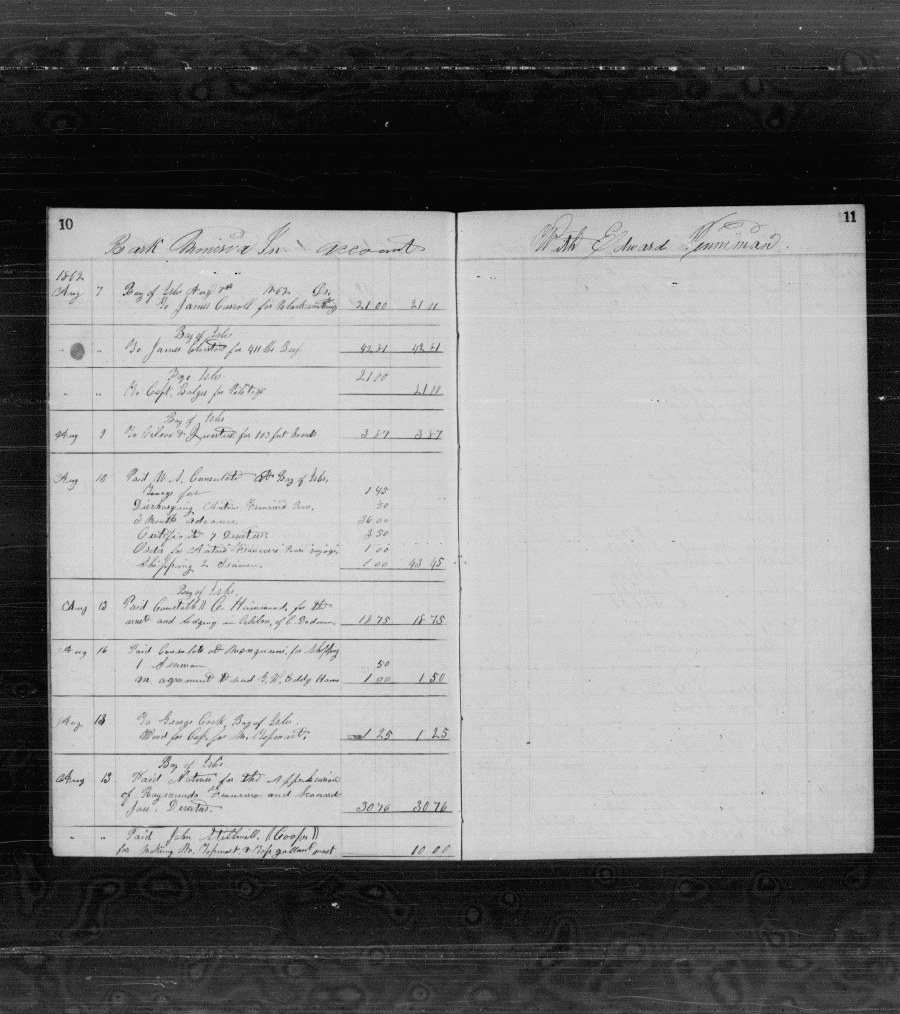 10
Bark Minerva In account
1862
Aug 7 Bay of Isles Aug 7th 1862 Dr.
To James Carroll for Blacksmithing 21 00 21 00
Bay of Isles
" " To James for 411 lbs Beef 42 81 42 81
Bay Isles 21 00
" " To Capt. Bolger for Pilotage 21 00
Bay of Isles
Aug 9 To & for 103 feet Boards 3 87 3 87
Aug 18 Paid U. S. Consulate at Bay of Isles,
for 1 45
Discharging Antone Francisco 50
3 Months advance. 36 00
Certificate 7 Deserters 3 50
Order for Antone Francisco 1 00
Shipping 2 Seamen. 1 00 43 45
Bay of Isles.
Aug 13 Paid Constable C. Hammond, for the
arrest and lodging in of C. 18 75 18 75
Aug 16 Paid Consulate at for Shipping
1 Seaman 50
an agreement G. W. Eddy 1 00 1 50
Aug. 13 To George Cook, Bay of Isles.
Wood for Cap, for M. Topmast, 1 25 1 25
Bay of Isles
Aug 13 Paid Natives for the Apprehension
of Raymundo Francisco and
Jose. Deserters. 30 76 30 76
" " Paid John (Cooper)
for Making Topmast & Top gallant mast 10 00
11
With Edward